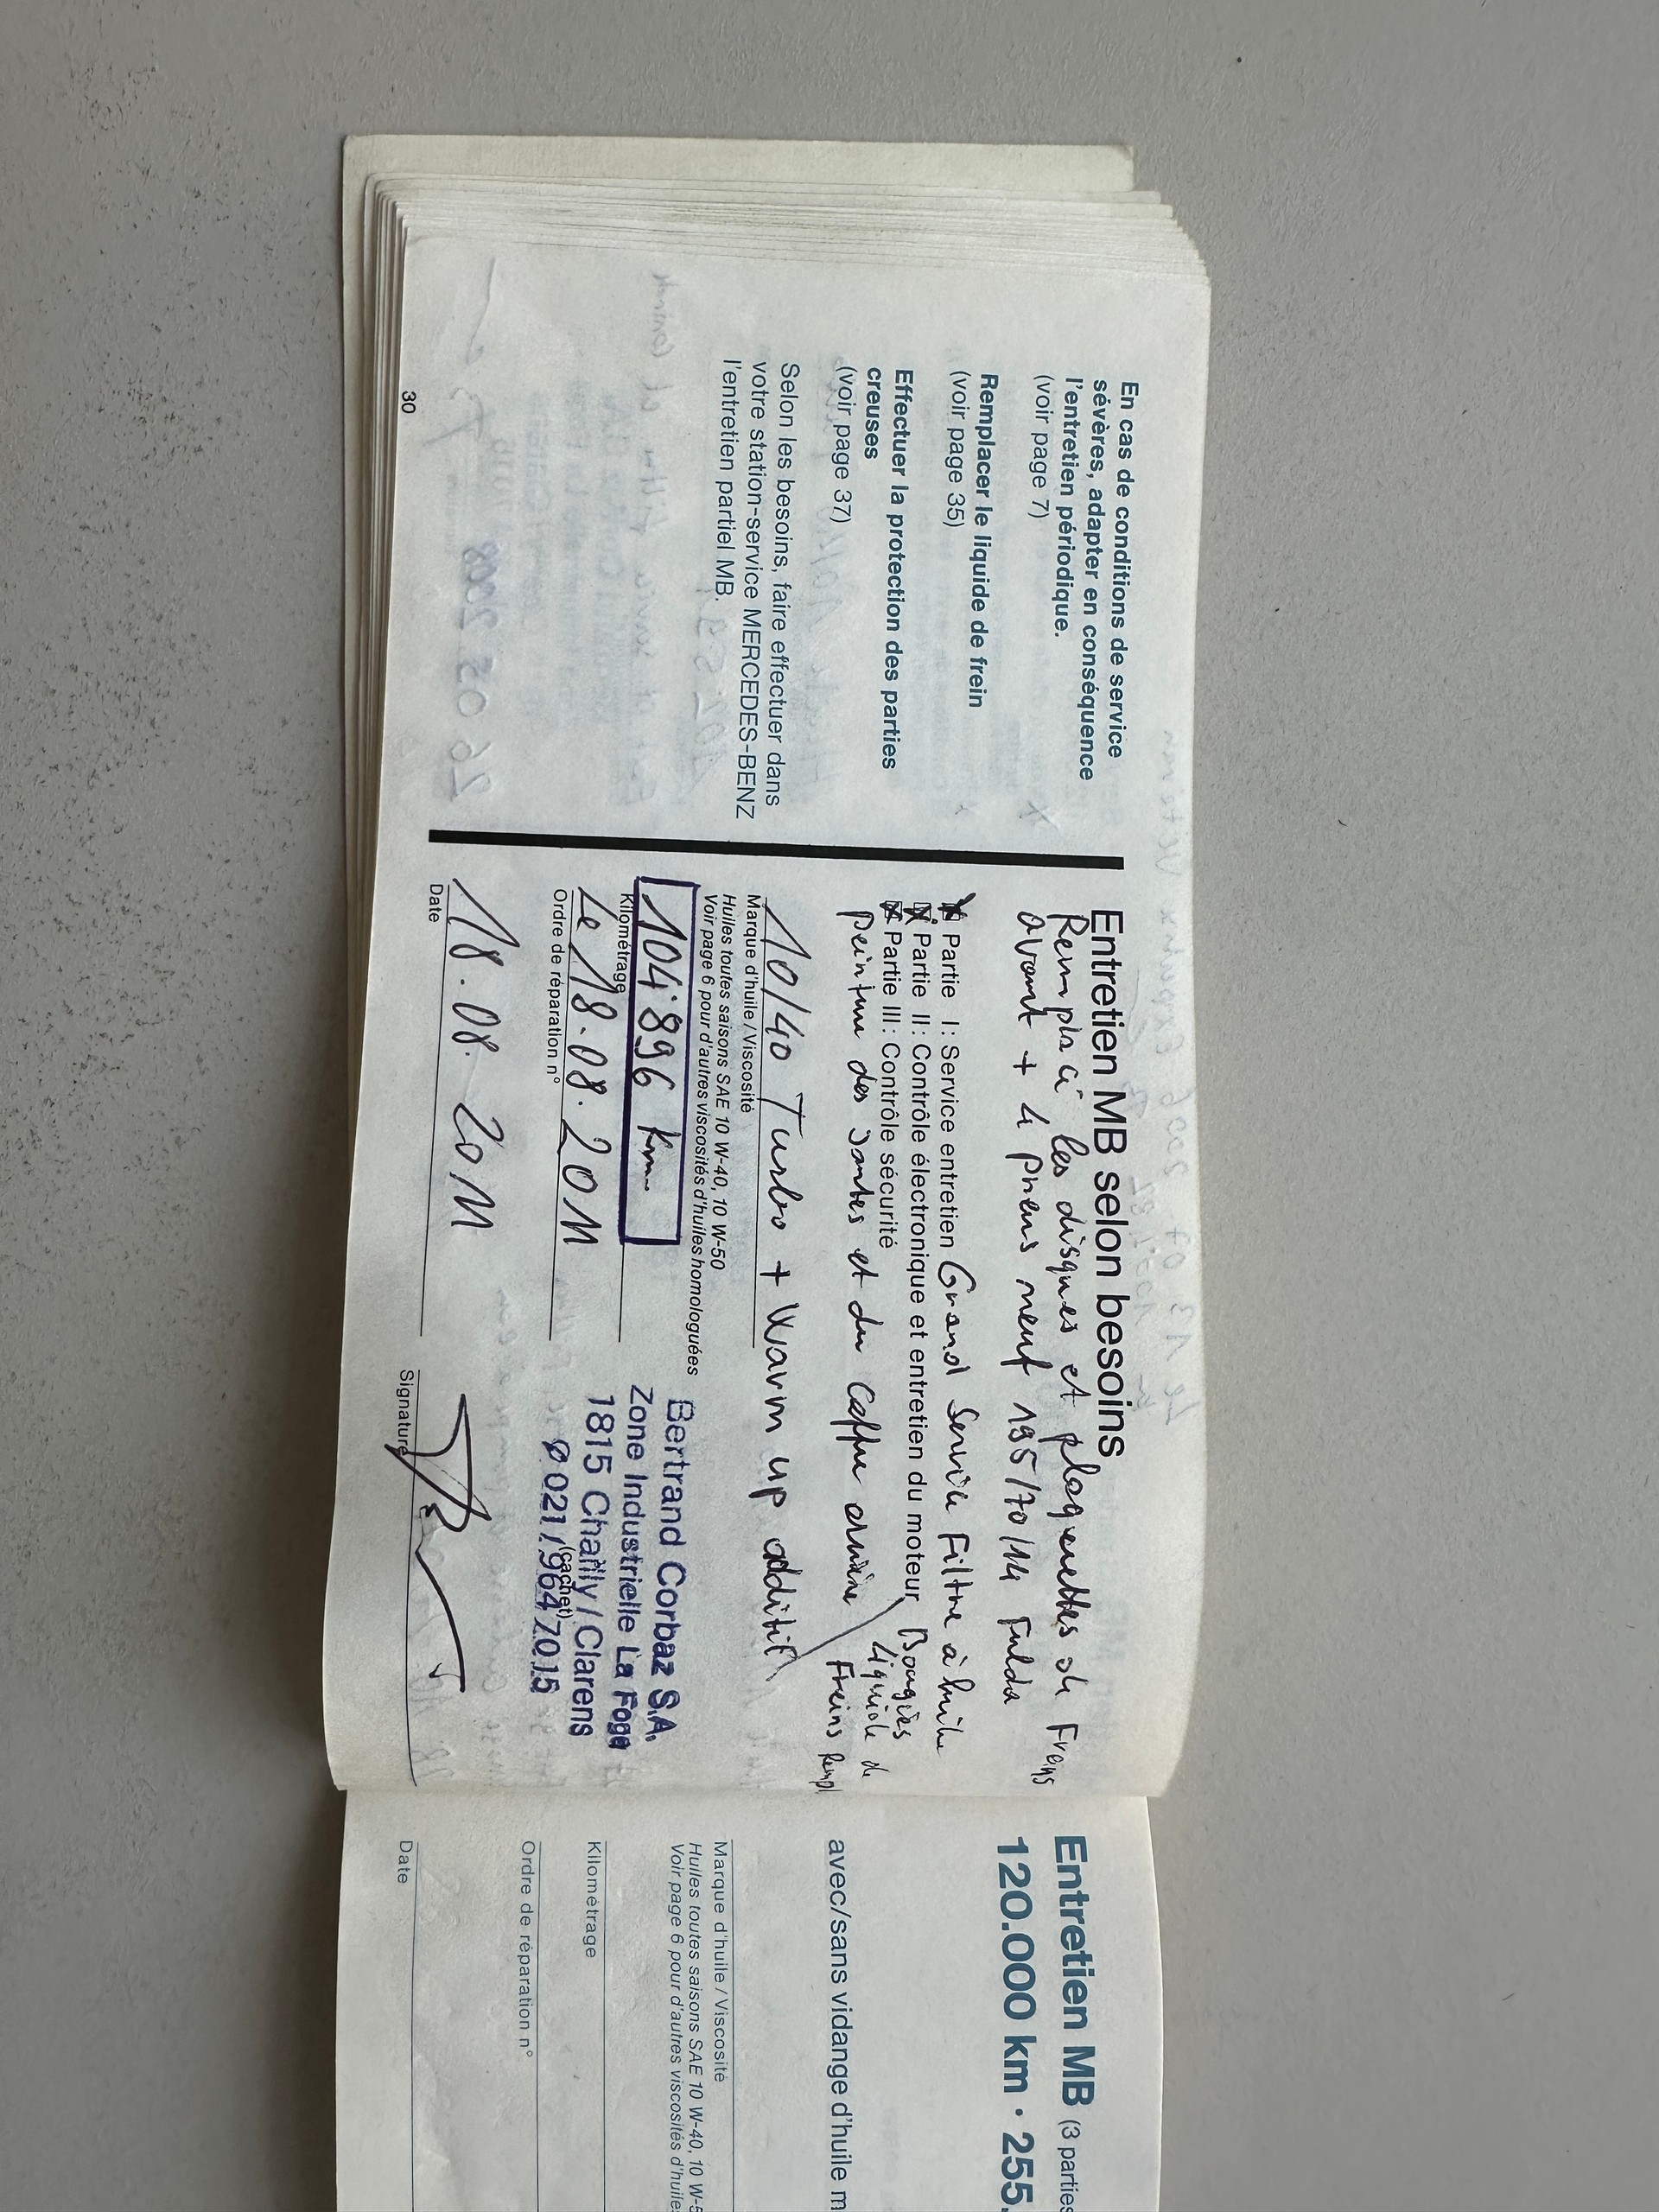 En cas de conditions de service
sévères, adapter en conséquence
l'entretien périodique.
(voir page 7)
Remplacer le liquide de frein
(voir page 35)
Effectuer la protection des parties
creuses
(voir page 37)
Selon les besoins, faire effectuer dans
votre station-service MERCEDES-BENZ
l'entretien partiel MB.
30
Entretien MB selon besoins
Remplacé les disques et plaquettes de Freins
avant + 4 pneus neuf 195/70/14 Fulda
Partie I: Service entretien Grand Service Filtre à huile
Partie II: Contrôle électronique et entretien du moteur Bougies
Partie III: Contrôle sécurité Liquide de
peinture des Jantes et du coffre arrière Freins Rempl
10/40 Turbo + Warm up additif
Marque d'huile / Viscosité
Huiles toutes saisons SAE 10 W-40, 10 W-50
Voir page 6 pour d'autres viscosités d'huiles homologuées
104'896 km
Kilométrage
Le 18.08.2011
Ordre de réparation n°
18.08.2011
Date
Bertrand Corbaz S.A.
Zone Industrielle La Foge
1815 Chailly/Clarens
021/964 70 15
(cachet)
Signature
Entretien MB (3 parties
120.000 km · 255.
avec/sans vidange d'huile m
Marque d'huile / Viscosité
Huiles toutes saisons SAE 10 W-40, 10 W-5
Voir page 6 pour d'autres viscosités d'huiles
Kilométrage
Ordre de réparation n°
Date